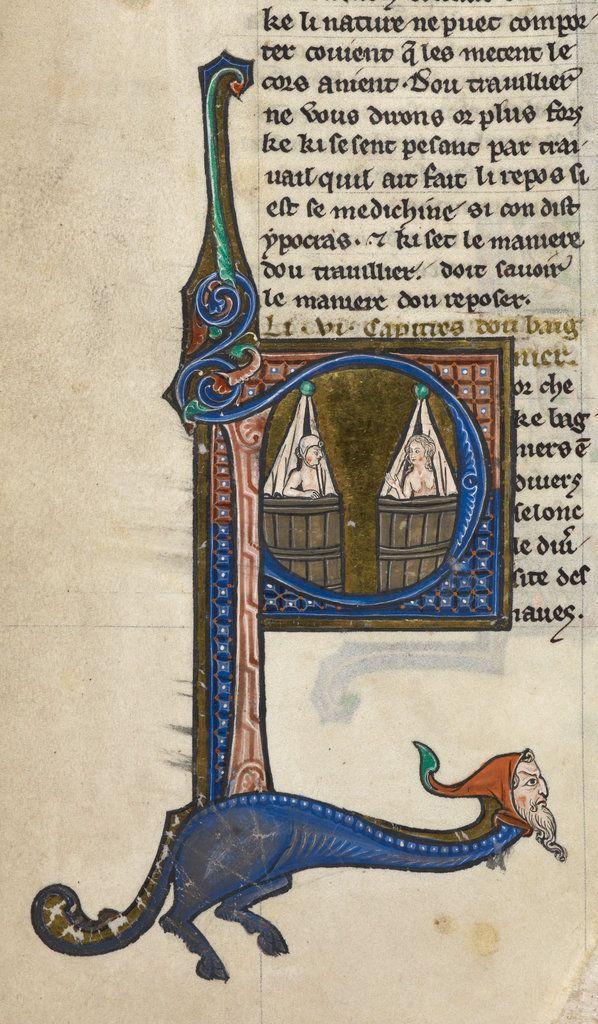 ke li nature ne puet compor
ter couient q̃ les mecent le
cors amient · Dou trauillier
ne vous dirons or plus fors
ke ki se sent pesant par trai
uail quil ait fait li repos si
est se medichine si con dist
ypocras · ⁊ ki set le maniere
dou trauillier. doit sauoir
le maniere dou reposer.
Li · vi · capitres dou baig
nier.
or che
ke bag
niers ẽ
diuers
selonc
le diũ
site des
iaues.